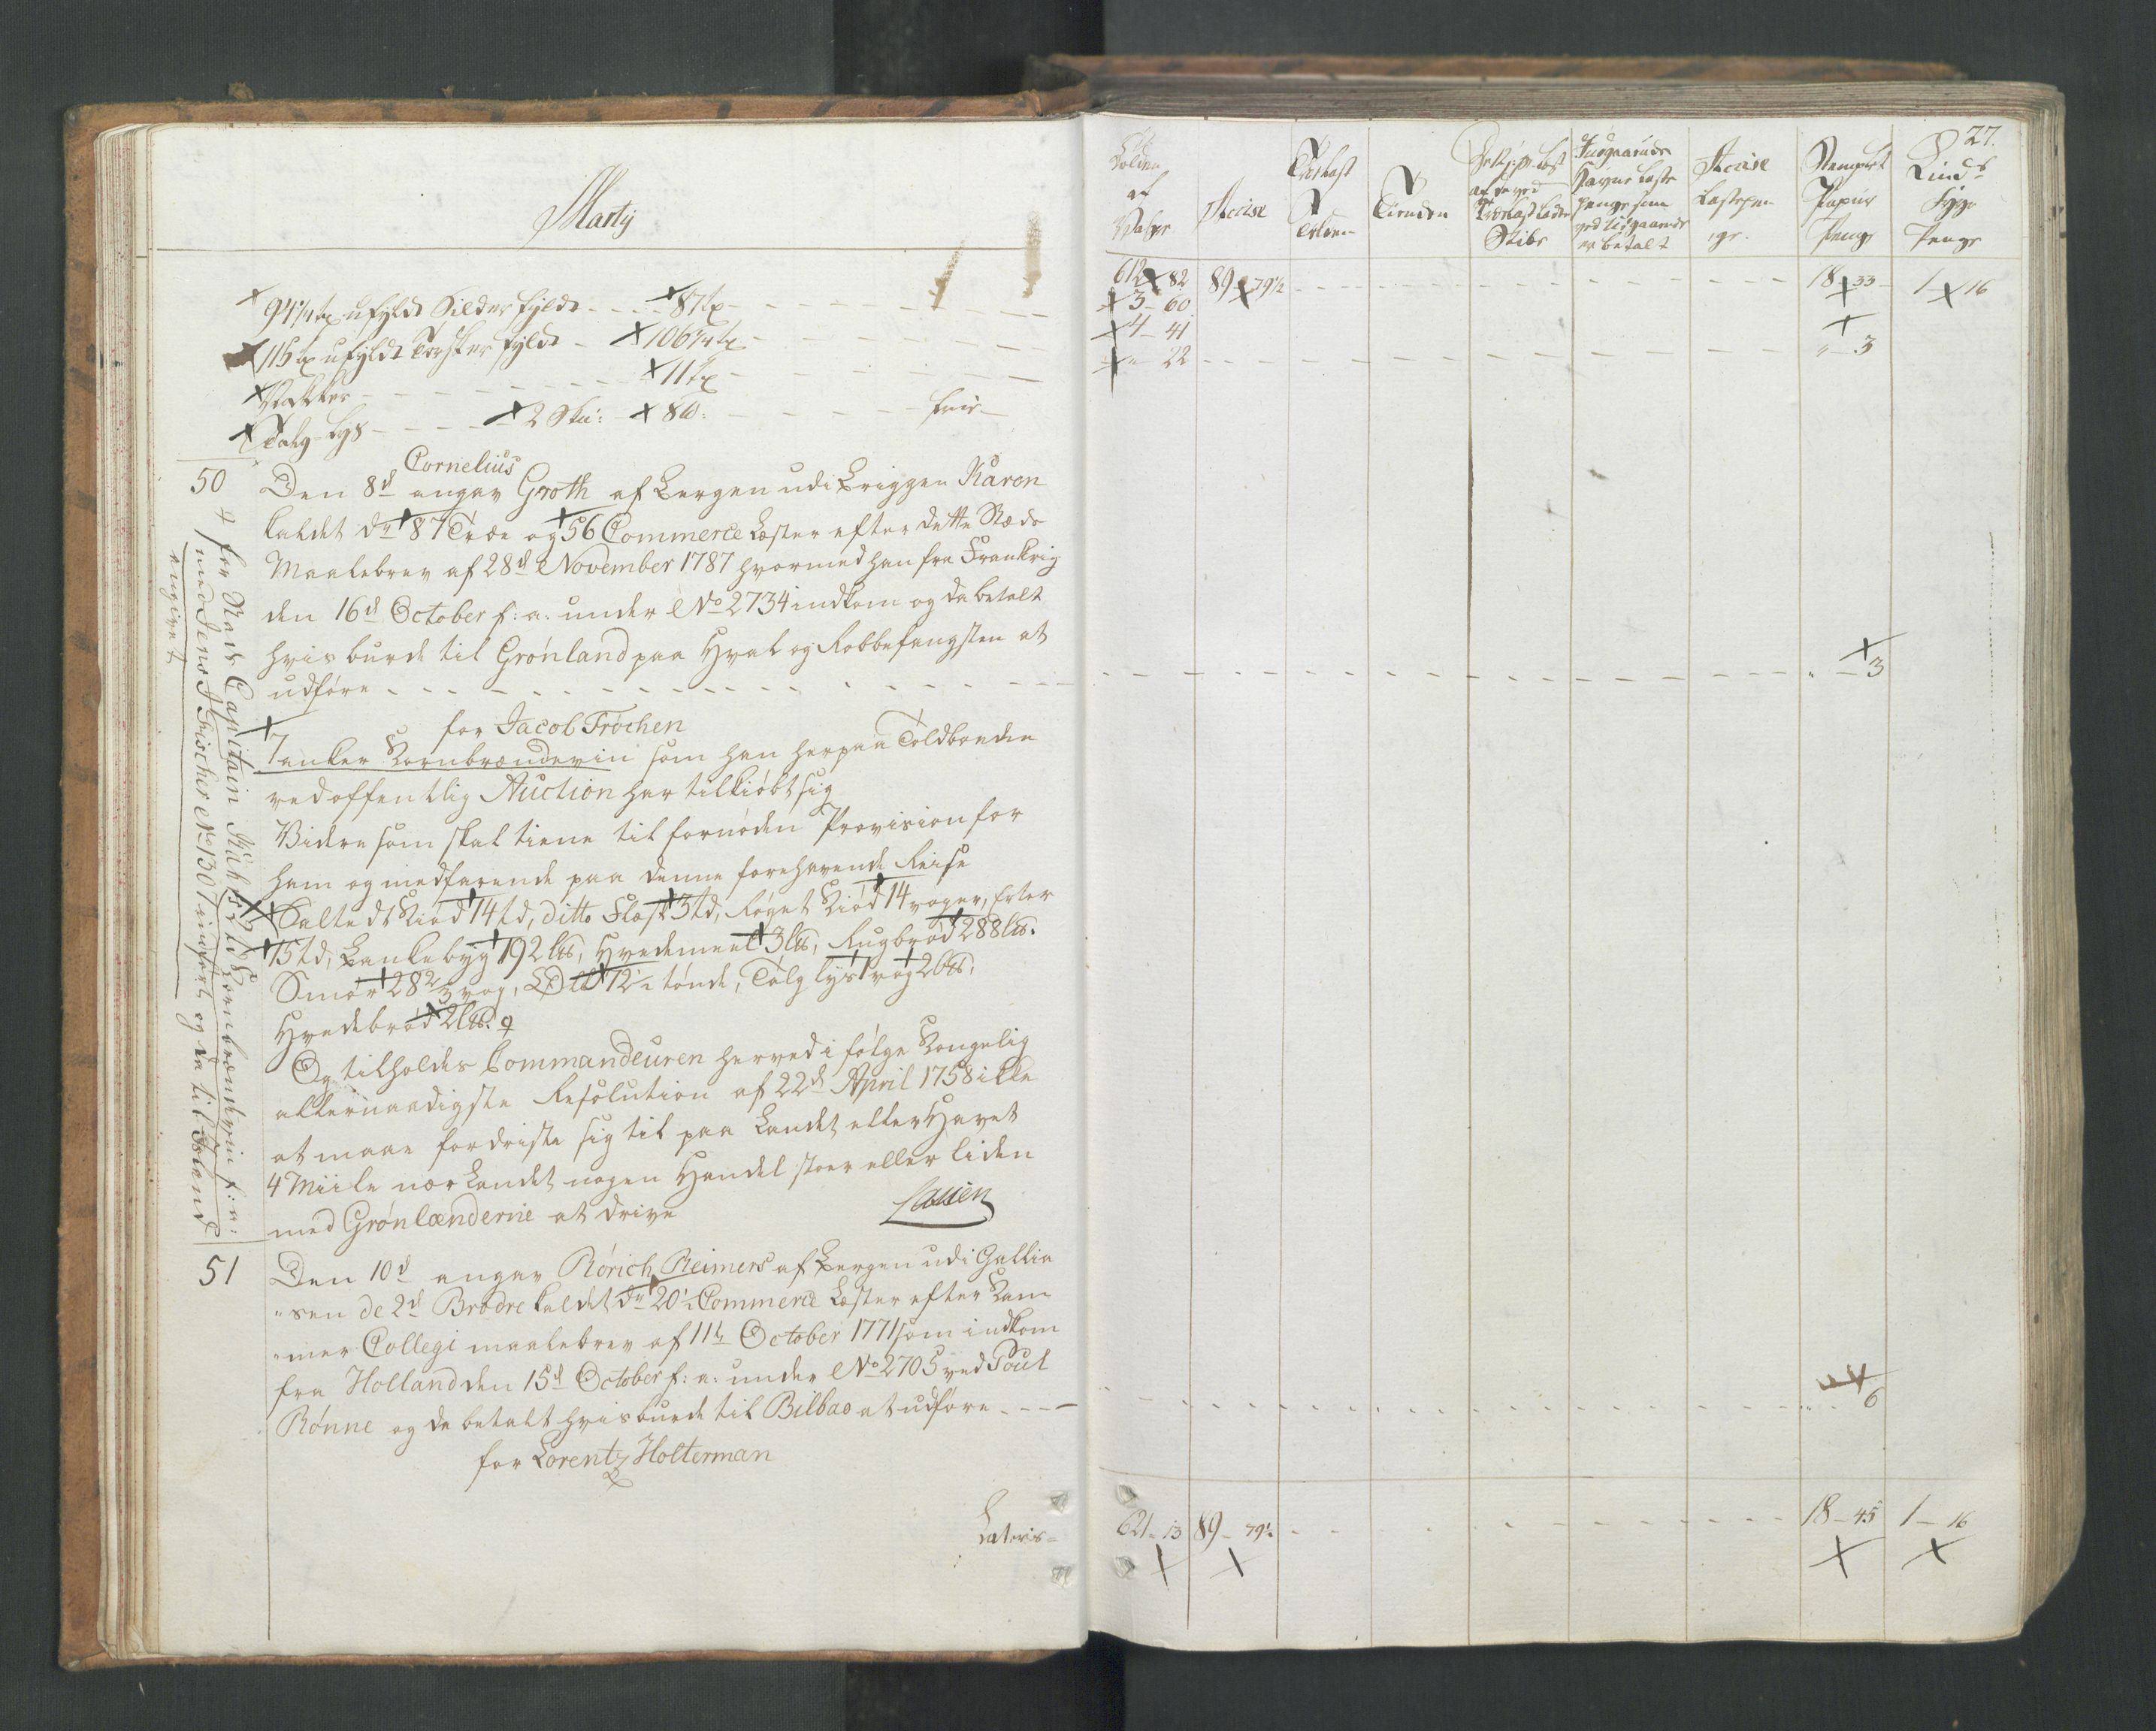 Martij
94 1/4 tr ufyldt Silder fyldt 87 tr
115 tr ufyldt Torsker fyldt 106 1/4 tr
11 tr
Talg Lys 2 8 frie
50
Cornelius
Den 8d angav Groth af Bergen udi Briggen Karen
kaldet dr 87 Træ og 56 Commerce Læster efter dette Stæds
Maalebrev af 28d November 1787 hvormed han fra Frankrig
den 16d October f: a: under No 2734 indkom og da betalt
hvis burde til Grønland paa Hval og Robbefangsten at
udføre
for Jacob Frøchen
7 anker Kornbrændeviin som han herpaa Toldboeden
ved offentlig Auction har tilkiøbt sig
Videre som skal tiene til fornøden Provision for
ham og medfarende paa denne forehavende Reise
Saltedt Kiød 14 td, ditto Flesk 3 td, Røget Kiød 14 voger, Erter
15 td, Bankebyg 192 lb, Hvedemeel 3 lb, Rugbrød 288 lb.
Smør 28 2/3 vog, Øll 12 1/2 tønde, Talg lys 1 vog 2 lb,
Hvedebrød 2 lb.
Og tilholdes Commandeuren herved i følge Kongelig
allernaadigste Resolution af 22d April 1758 ikke
at maae fordriste sig til paa Landet eller Havet
4 Miile nær Landet nogen Handel stoer eller liden
med Grønlænderne at drive
for Stads Capitain 12 td Kornbrændeviin f: a:
med Jens Fischer No 1307 indført og da til Island
angivet
51
Den 10d angav Rørich Reimers af Bergen udi Gallia
sen de 2d Brødre kaldet dr 20 1/2 Commerce Læster efter Kam
mer Collegi maalebrev af 11t October 1771 som indkom
fra Holland den 15d October f: a: under No 2705 ved Poul
Rønne og da betalt hvis burde til Bilbao at udføre
for Lorentz Holterman
Lateris
27.
Tolden af
Accise
Tienden
Indgaaende Havne Laste penge som ved Udgaaende er betalt
Accise Lastepenge
Stemplet Papiir Penge
Lindb Fyge Penge
612 82 89 79 1/2 18 33 1 16
3 60
4 41
" 22 " 3
" 3
" 6
621 13 89 79 1/2 18 45 1 16